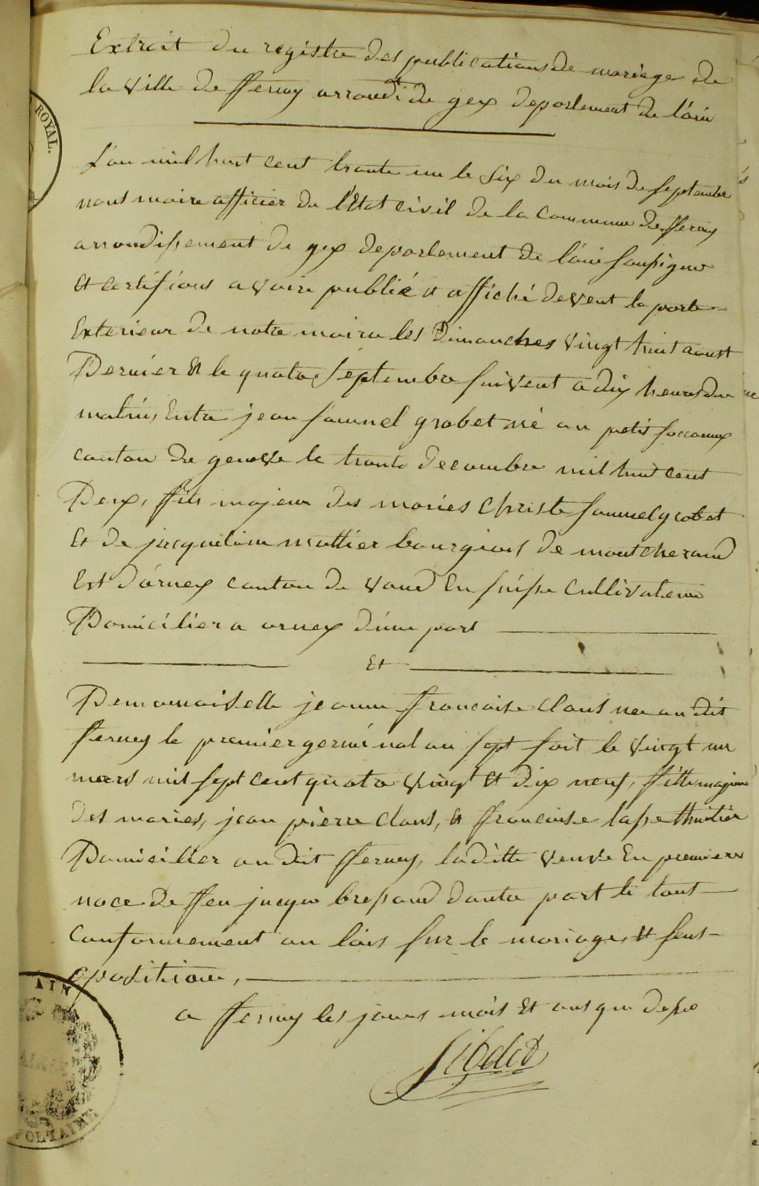 Extrait du registre des publications de mariage de
la ville de fferney arrondi de gex deportement de l'ain
ROYAL.
L'an mil huit cent trante un le six du mois de septembre
nous maire officier de l'Etat civil de la commune de fferney
arrondissement de gex deportement de l'ain soussigner
et certifions avoire publié et affiché devent la porte
Exterieur de notre maire les Dimanches vingt huit aoust
Dernier et le quatre septembre suivent a dix heures du
matin, Entre jean samuel grobet né au petit saconnex
canton de geneve le trante decembre mil huit cent
Deux, fils majeur des mariés christe samuel grobet
Et de jacqueline mattier bourgeois de montcherand
Est d'arnex canton de vaud En suisse cultivateur
Domicilier a arnex d'une part
Et
Demamaiselle jeanne francoise claus nee au dit
ferney le premier germinal an sept soit le vingt un
mars mil sept cent quatre vingt et dix neuf, fille majeure
des maries, jean pierre claus, et francoise
Domicilier au dit fferney, laditte veuve En premiere
noce de ffeu jaque bressand d'autre part le tout
conformement au lois sur le mariage, et sens
opositione,
a fferney les jours mois Et ans que desso
AIN
VOLTAIRE